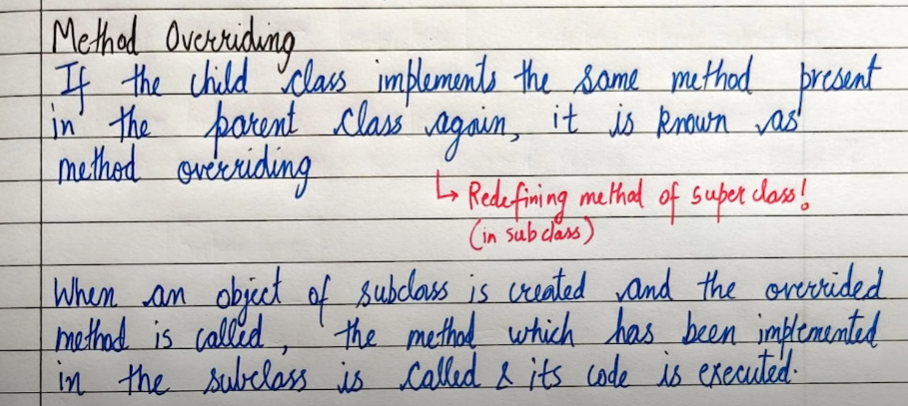 Method Overriding
If the child class implements the same method present
in the parent class again, it is known as
method overriding
↳ Redefining method of super class!
(in sub class)
When an object of subclass is created and the overrided
method is called, the method which has been implemented
in the subclass is called & its code is executed.